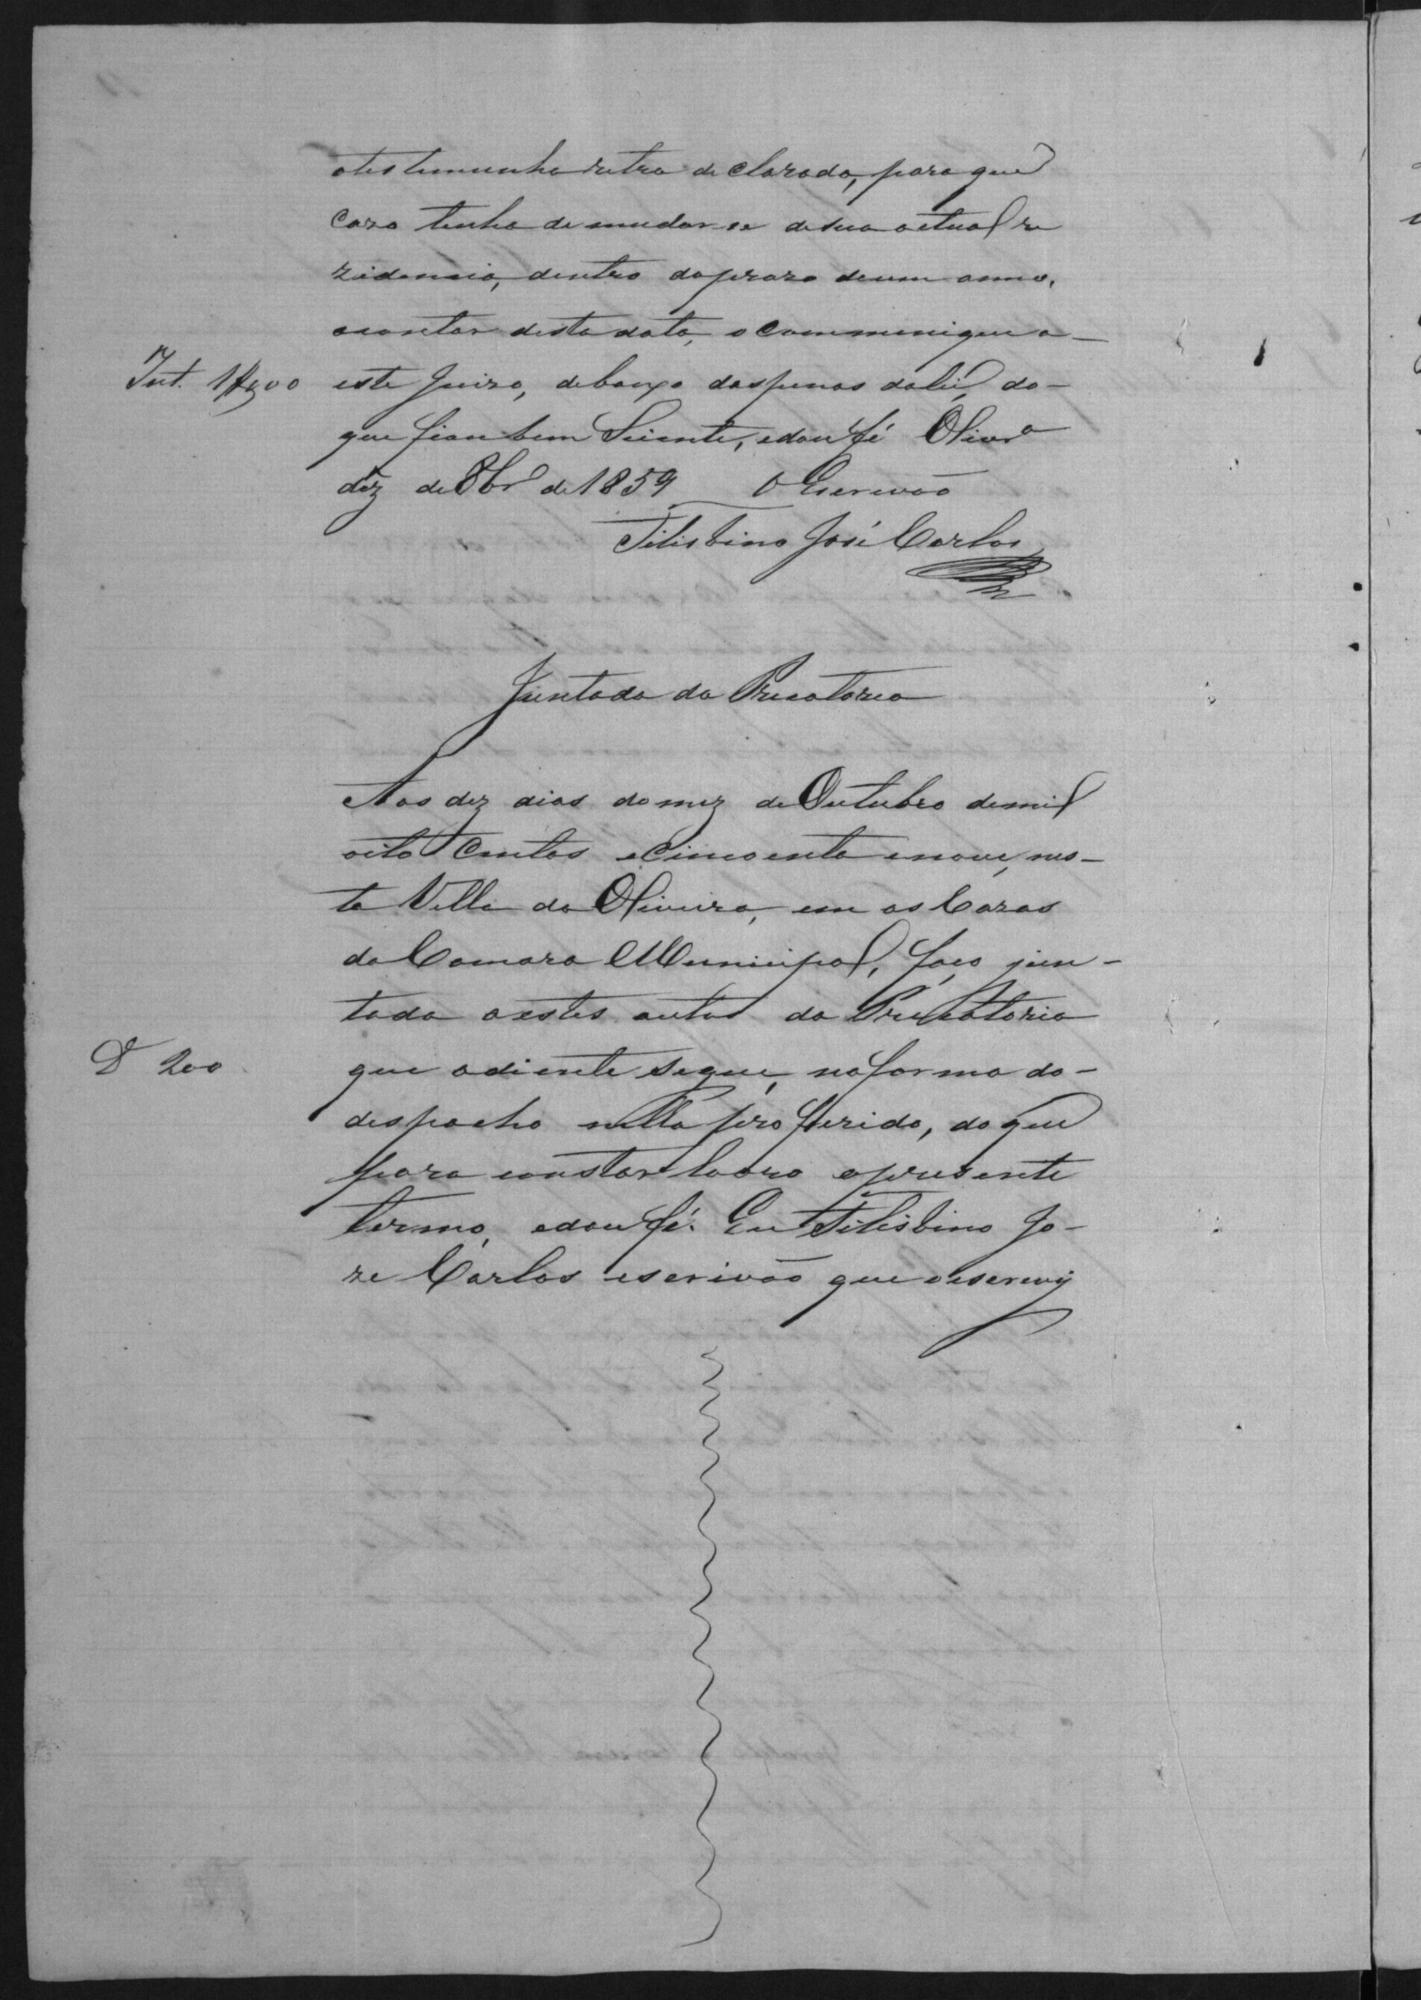 atestemunha retro declarada, para que
cazo tenha de mudar-se de sua actual re
zidencia, dentro do prazo de um anno,
acontar desta data, o communique a-
Int. 1$500 este Juizo, debaixo das penas da lei, do-
que ficou bem Sciente, edou fé Olivrª
dez de 8br de 1859 O Escrivão
Filisbino José Carlos
Juntada da Precatoria
Aos dez dias do mez de Outubro demil
oito Centos e Cincoenta enove, nes-
ta Villa da Oliveira, em as Cazas
da Camara Municipal, faço jun-
tada aestes autos da Precatoria
D 200 que adiente segue, na forma do-
despacho nella proferido, do que
para constar lavro o presente
termo, edou fé. Eu Filisbino Jo-
ze Carlos escrivão que o escrevy